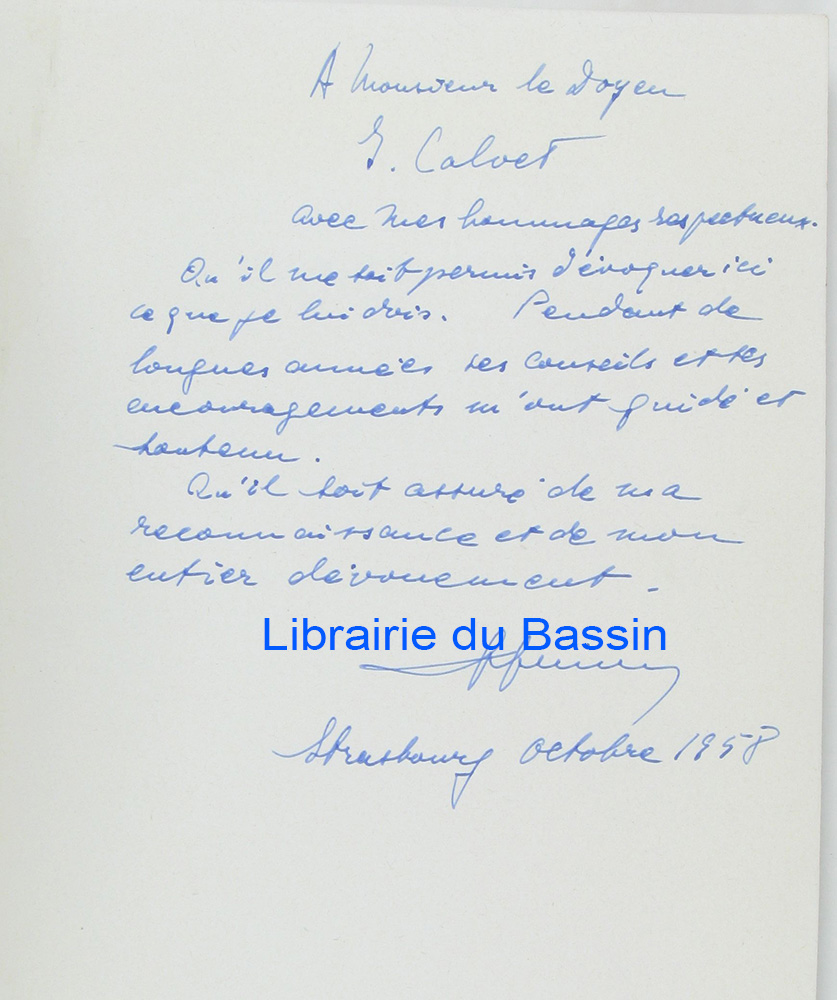 A Monsieur le Doyen
J. Calvet
avec mes hommages respectueux.
Qu'il me soit permis d'évoquer ici
ce que je lui dois. Pendant de
longues années ses conseils et ses
encouragements m'ont guidé et
soutenu.
Qu'il soit assuré de ma
reconnaissance et de mon
entier dévouement.
Librairie du Bassin
Strasbourg Octobre 1958